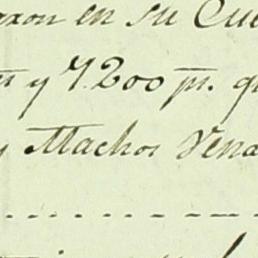 axon en su Cue
y 7200 ps. q
y Machos Vena